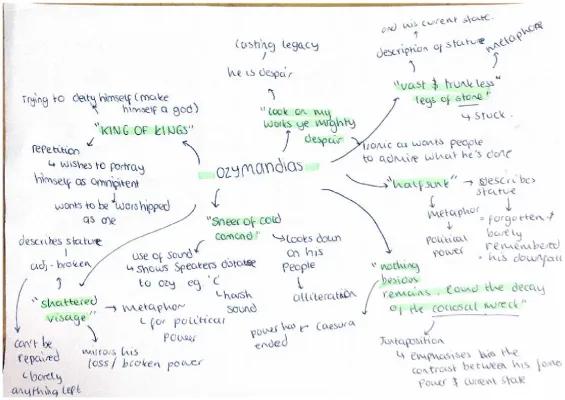 and his current state.
description of stature
metaphor
"vast & trunkless
legs of stone"
↳ stuck.
lasting legacy
he is despair
"look on my
works ye mighty
despair"
ironic as wants people
to admire what he's done
Trying to deity himself (make
himself a god)
"KING OF KINGS"
repetition
↳ wishes to portray
himself as omnipitent
wants to be worshipped
as one
ozymandias
"half sunk" → describes
stature
metaphor
political
power
forgotten &
barely
remembered
his downfall
"sneer of cold
comand"
use of sound
↳ shows speakers distaste
to ozy eg. 'c'
↳ harsh
sound
looks down
on his
people
alliteration
describes stature
adj - broken
"shattered
visage"
→ metaphor
↳ for political
power
can't be
repaired
↳ barely
anything left
mirrors his
loss / broken power
"nothing
beside
remains. round the decay
of the colossal wreck"
caesura
power has
ended
Juxtaposition
↳ emphasises the
contrast between his
power & current state